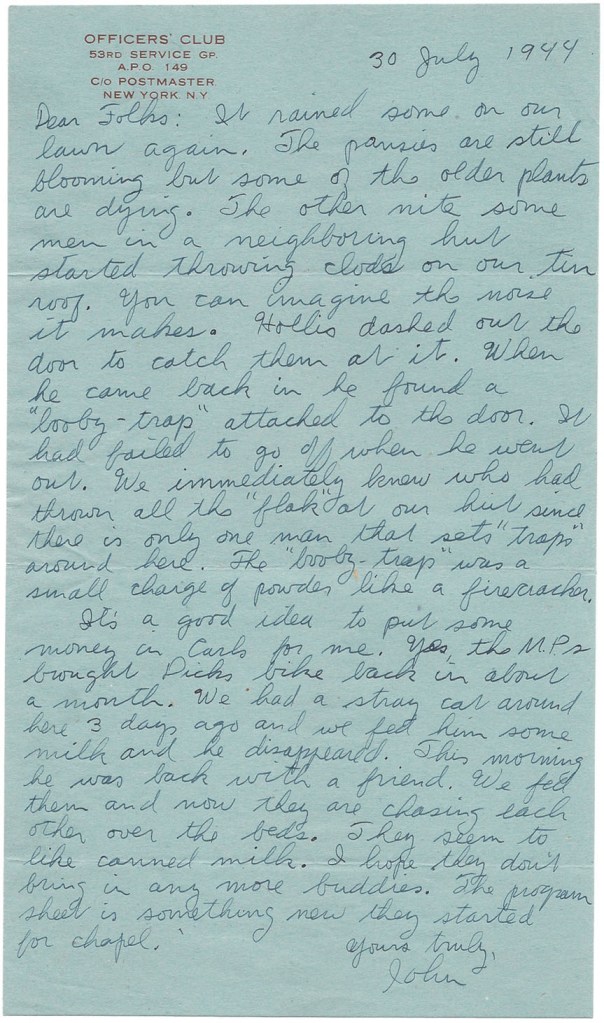 OFFICERS' CLUB
53RD SERVICE GP.
A.P.O. 149
C/O POSTMASTER
NEW YORK. N.Y
30 July 1944
Dear Folks: It rained some on our
lawn again. The pansies are still
blooming but some of the older plants
are dying. The other nite some
men in a neighboring hut
started throwing clods on our tin
roof. You can imagine the noise
it makes. Hollis dashed out the
door to catch them at it. When
he came back in he found a
"booby-trap" attached to the door. It
had failed to go off when he went
out. We immediately knew who had
thrown all the "flak" at our hut since
there is only one man that sets "traps"
around here. The "booby-trap" was a
small charge of powder like a firecracker.
It's a good idea to put some
money in Carls for me. Yes, the M.P.s
brought Dicks bike back in about
a month. We had a stray cat around
here 3 days ago and we fed him some
milk and he disappeared. This morning
he was back with a friend. We fed
them and now they are chasing each
other over the beds. They seem to
like canned milk. I hope they don't
bring in any more buddies. The program
sheet is something new they started
for chapel.
Yours truly,
John